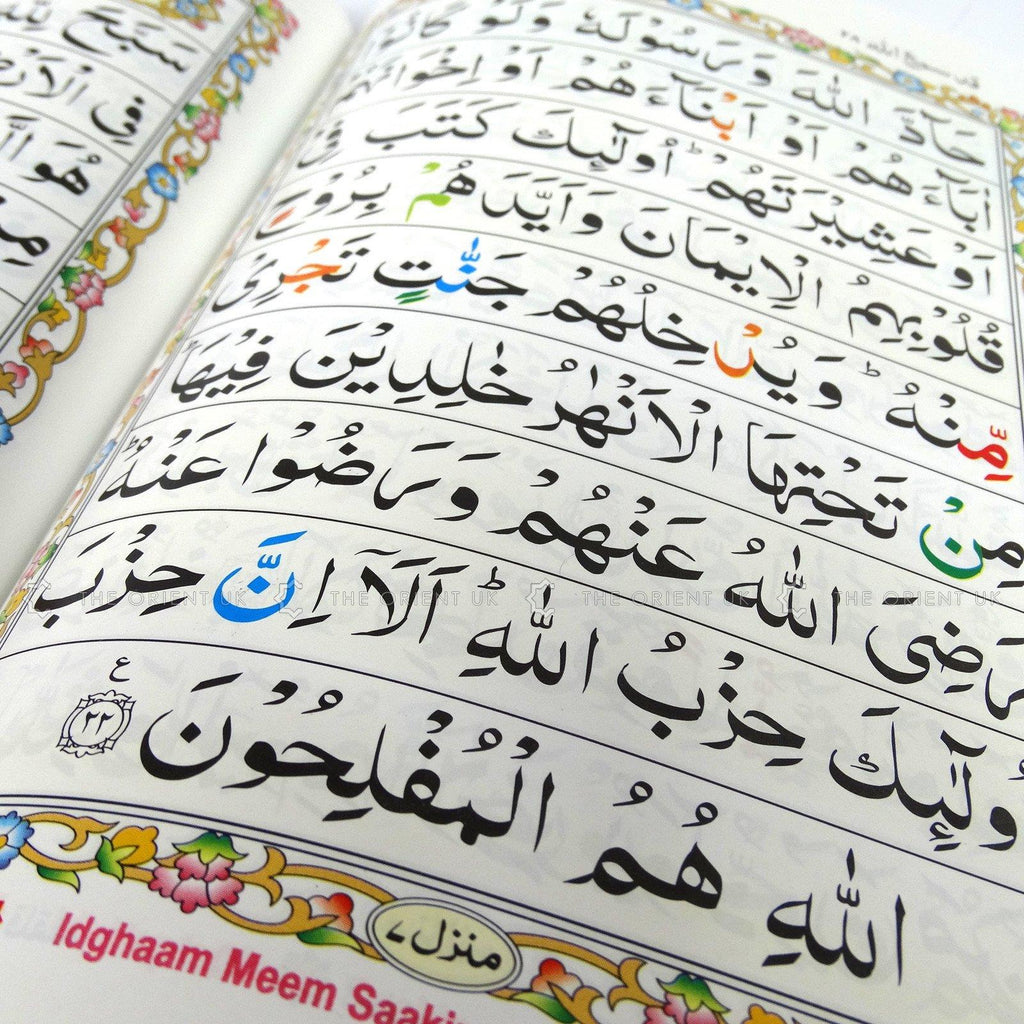 قد سمع الله ٢٨
حَآدَّ اللّٰهَ وَ رَسُوْلَهٗ وَلَوْ كَانُوْۤا
اٰبَآءَ هُمْ اَوْ اَبْنَآءَ هُمْ اَوْ اِخْوَانَهُمْ
اَوْ عَشِيْرَتَهُمْ ؕ اُولٰٓئِكَ كَتَبَ فِیْ
قُلُوْبِهِمُ الْاِيْمَانَ وَ اَيَّدَهُمْ بِرُوْحٍ
مِّنْهُ ؕ وَ يُدْخِلُهُمْ جَنّٰتٍ تَجْرِیْ
مِنْ تَحْتِهَا الْاَنْهٰرُ خٰلِدِيْنَ فِيْهَا ؕ
رَضِیَ اللّٰهُ عَنْهُمْ وَ رَضُوْا عَنْهُ ؕ
اُولٰٓئِكَ حِزْبُ اللّٰهِ ؕ اَلَاۤ اِنَّ حِزْبَ
اللّٰهِ هُمُ الْمُفْلِحُوْنَ ۲۲ ع
منزل ٧
Idghaam Meem
سَبَّحَ
هُوَ
THE ORIENT UK THE ORIENT UK THE ORIENT UK THE ORIENT UK